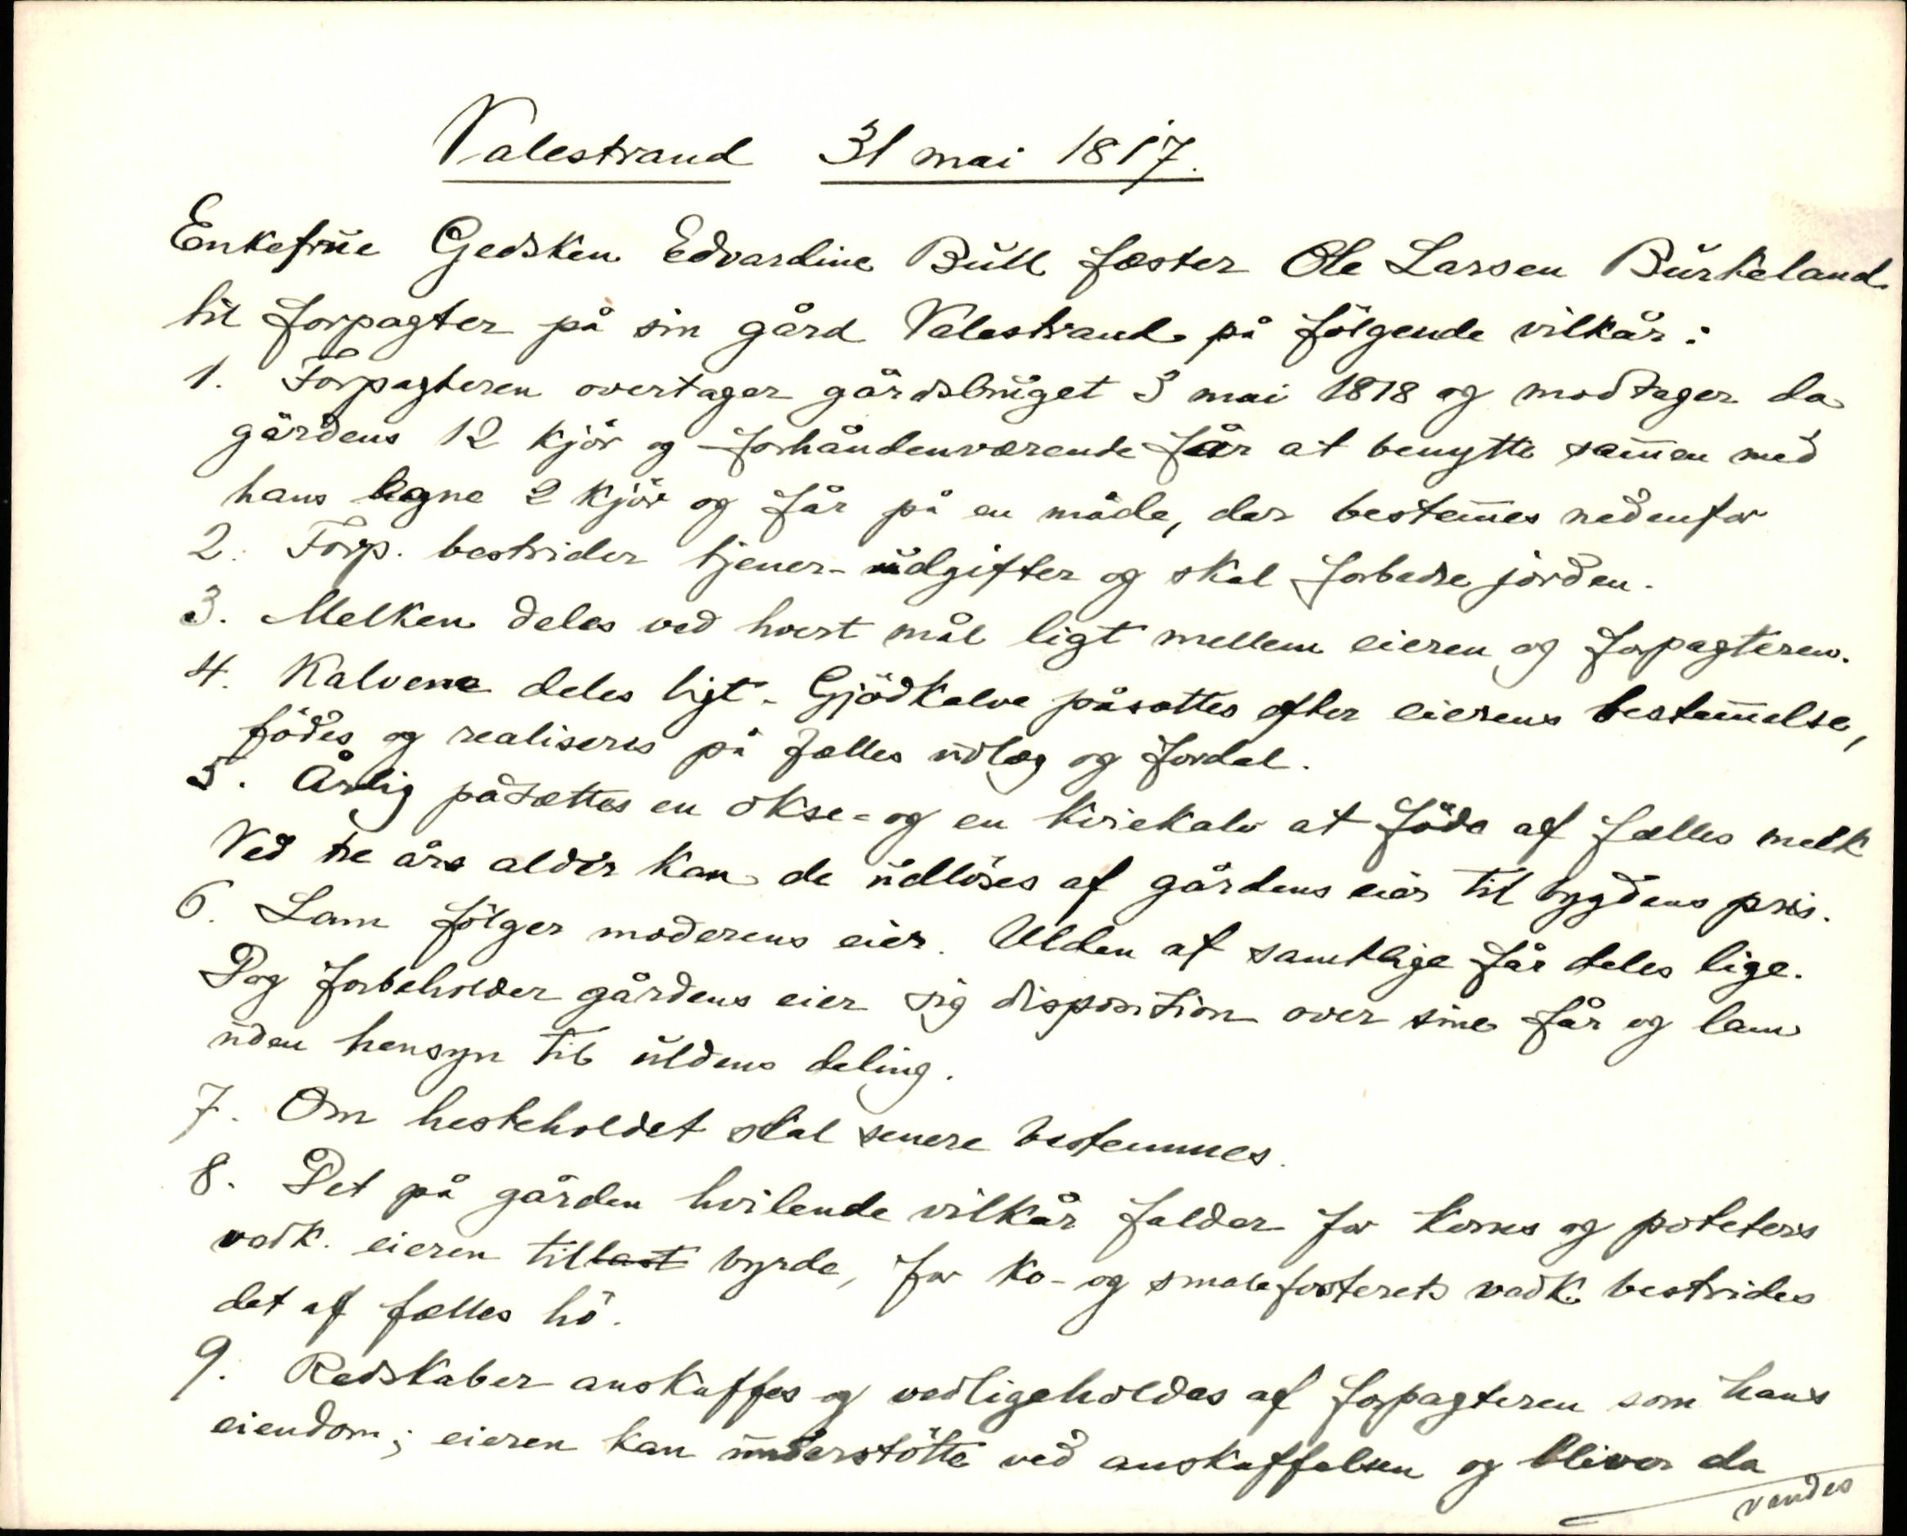 Valestrand 31 mai 1817.
Enkefrue Gedsken Edvardine Bull fæster Ole Larsen Burkeland
til forpagter på sin gård Valestrand på fölgende vilkår:
1. Forpagteren overtager gårdsbruget 3 mai 1818 og modtager da
gårdens 12 kjör og forhåndenværende får at benytte sam̄en med
hans egne 2 kjör og får på en måde, der bestem̄es nedenfor
2. Forp. bestrider tjener-udgifter og skal forbedre jorden.
3. Melken deles ved hvert mål ligt mellem eieren og forpagteren.
4. Kalvene deles ligt. Gjödkalve påsættes efter eierens bestem̄else,
födes og realiseres på fælles udlæg og fordel.
5. Årlig påsættes en okse- og en kviekalv at föde af fælles melk
Ved tre års alder kan de udlöses af gårdens eier til bygdens pris.
6. Lam fölger moderens eier. Ulden af samtlige får deles lige.
Dog forbeholder gårdens eier sig disposition over sine får og lam
uden hensyn til uldens deling.
7. Om hesteholdet skal senere bestemmes.
8. Det på gården hvilende vilkår falder for korns og poteters
vedk. eieren til last byrde, for ko- og smalefosterets vedk. bestrides
det af fælles hö.
9. Redskaber anskaffes og vedligeholdes af forpagteren som hans
eiendom; eieren kan understötte ved anskaffelsen og bliver da
vendes